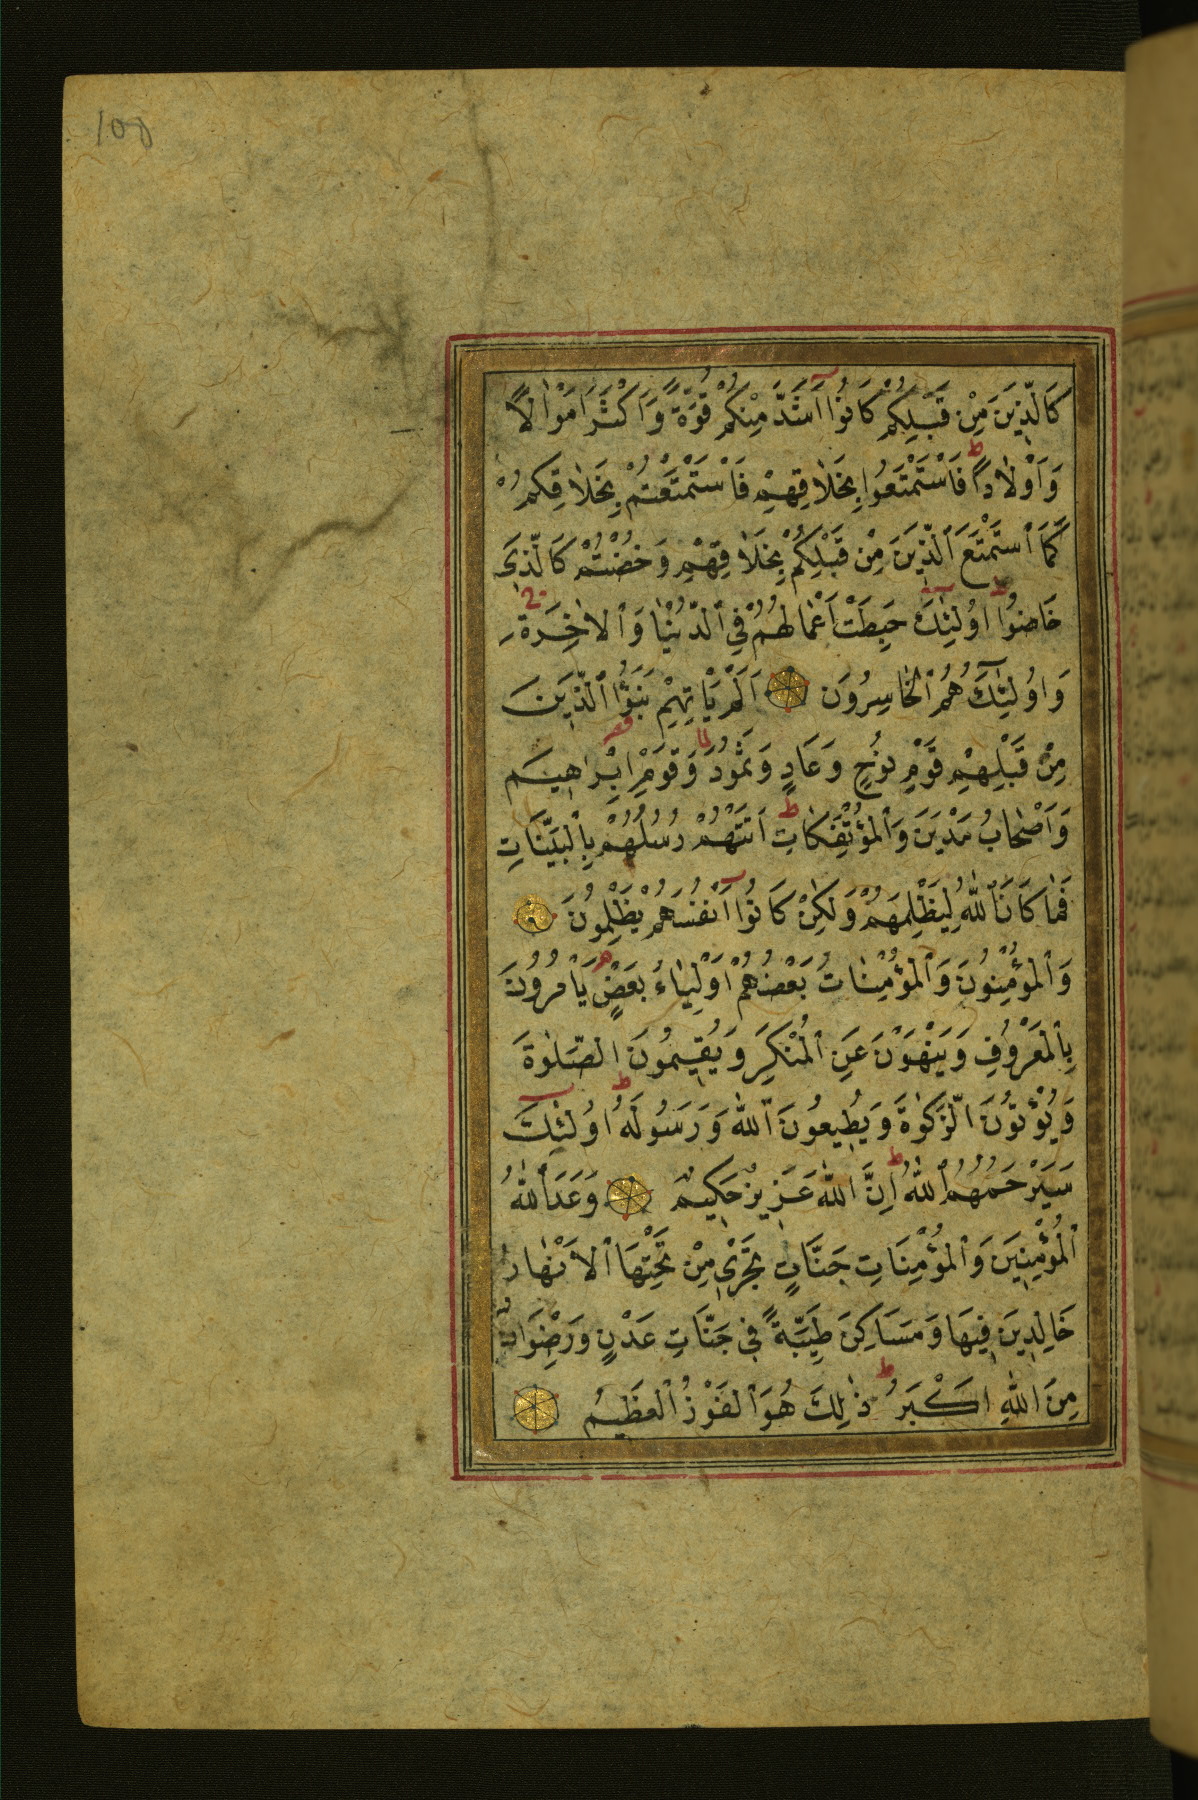 108
كَالَّذِينَ مِنْ قَبْلِكُمْ كَانُوا أَشَدَّ مِنْكُمْ قُوَّةً وَأَكْثَرَ أَمْوَالًا
وَأَوْلَادًا ط فَاسْتَمْتَعُوا بِخَلَاقِهِمْ فَاسْتَمْتَعْتُمْ بِخَلَاقِكُمْ
كَمَا اسْتَمْتَعَ الَّذِينَ مِنْ قَبْلِكُمْ بِخَلَاقِهِمْ وَخُضْتُمْ كَالَّذِي
خَاضُوا ط اُولٰئِكَ حَبِطَتْ أَعْمَالُهُمْ فِي الدُّنْيَا وَالْاٰخِرَةِ ج
وَاُولٰئِكَ هُمُ الْخَاسِرُونَ اَلَمْ يَاْتِهِمْ نَبَؤُا الَّذِينَ
مِنْ قَبْلِهِمْ قَوْمِ نُوحٍ وَعَادٍ وَثَمُودَ لا وَقَوْمِ اِبْرٰاهِيمَ
وَاَصْحَابِ مَدْيَنَ وَالْمُؤْتَفِكَاتِ ط اَتَتْهُمْ رُسُلُهُمْ بِالْبَيِّنَاتِ
فَمَا كَانَ اللّٰهُ لِيَظْلِمَهُمْ وَلٰكِنْ كَانُوا اَنْفُسَهُمْ يَظْلِمُونَ
وَالْمُؤْمِنُونَ وَالْمُؤْمِنَاتُ بَعْضُهُمْ اَوْلِيَاءُ بَعْضٍ م يَاْمُرُونَ
بِالْمَعْرُوفِ وَيَنْهَوْنَ عَنِ الْمُنْكَرِ وَيُقِيمُونَ الصَّلٰوةَ
وَيُؤْتُونَ الزَّكٰوةَ وَيُطِيعُونَ اللّٰهَ وَرَسُولَهُ ط اُولٰئِكَ
سَيَرْحَمُهُمُ اللّٰهُ ط اِنَّ اللّٰهَ عَزِيزٌ حَكِيمٌ وَعَدَ اللّٰهُ
الْمُؤْمِنِينَ وَالْمُؤْمِنَاتِ جَنَّاتٍ تَجْرِي مِنْ تَحْتِهَا الْاَنْهَارُ
خَالِدِينَ فِيهَا وَمَسَاكِنَ طَيِّبَةً فِي جَنَّاتِ عَدْنٍ وَرِضْوَانٌ
مِنَ اللّٰهِ اَكْبَرُ ط ذٰلِكَ هُوَ الْفَوْزُ الْعَظِيمُ